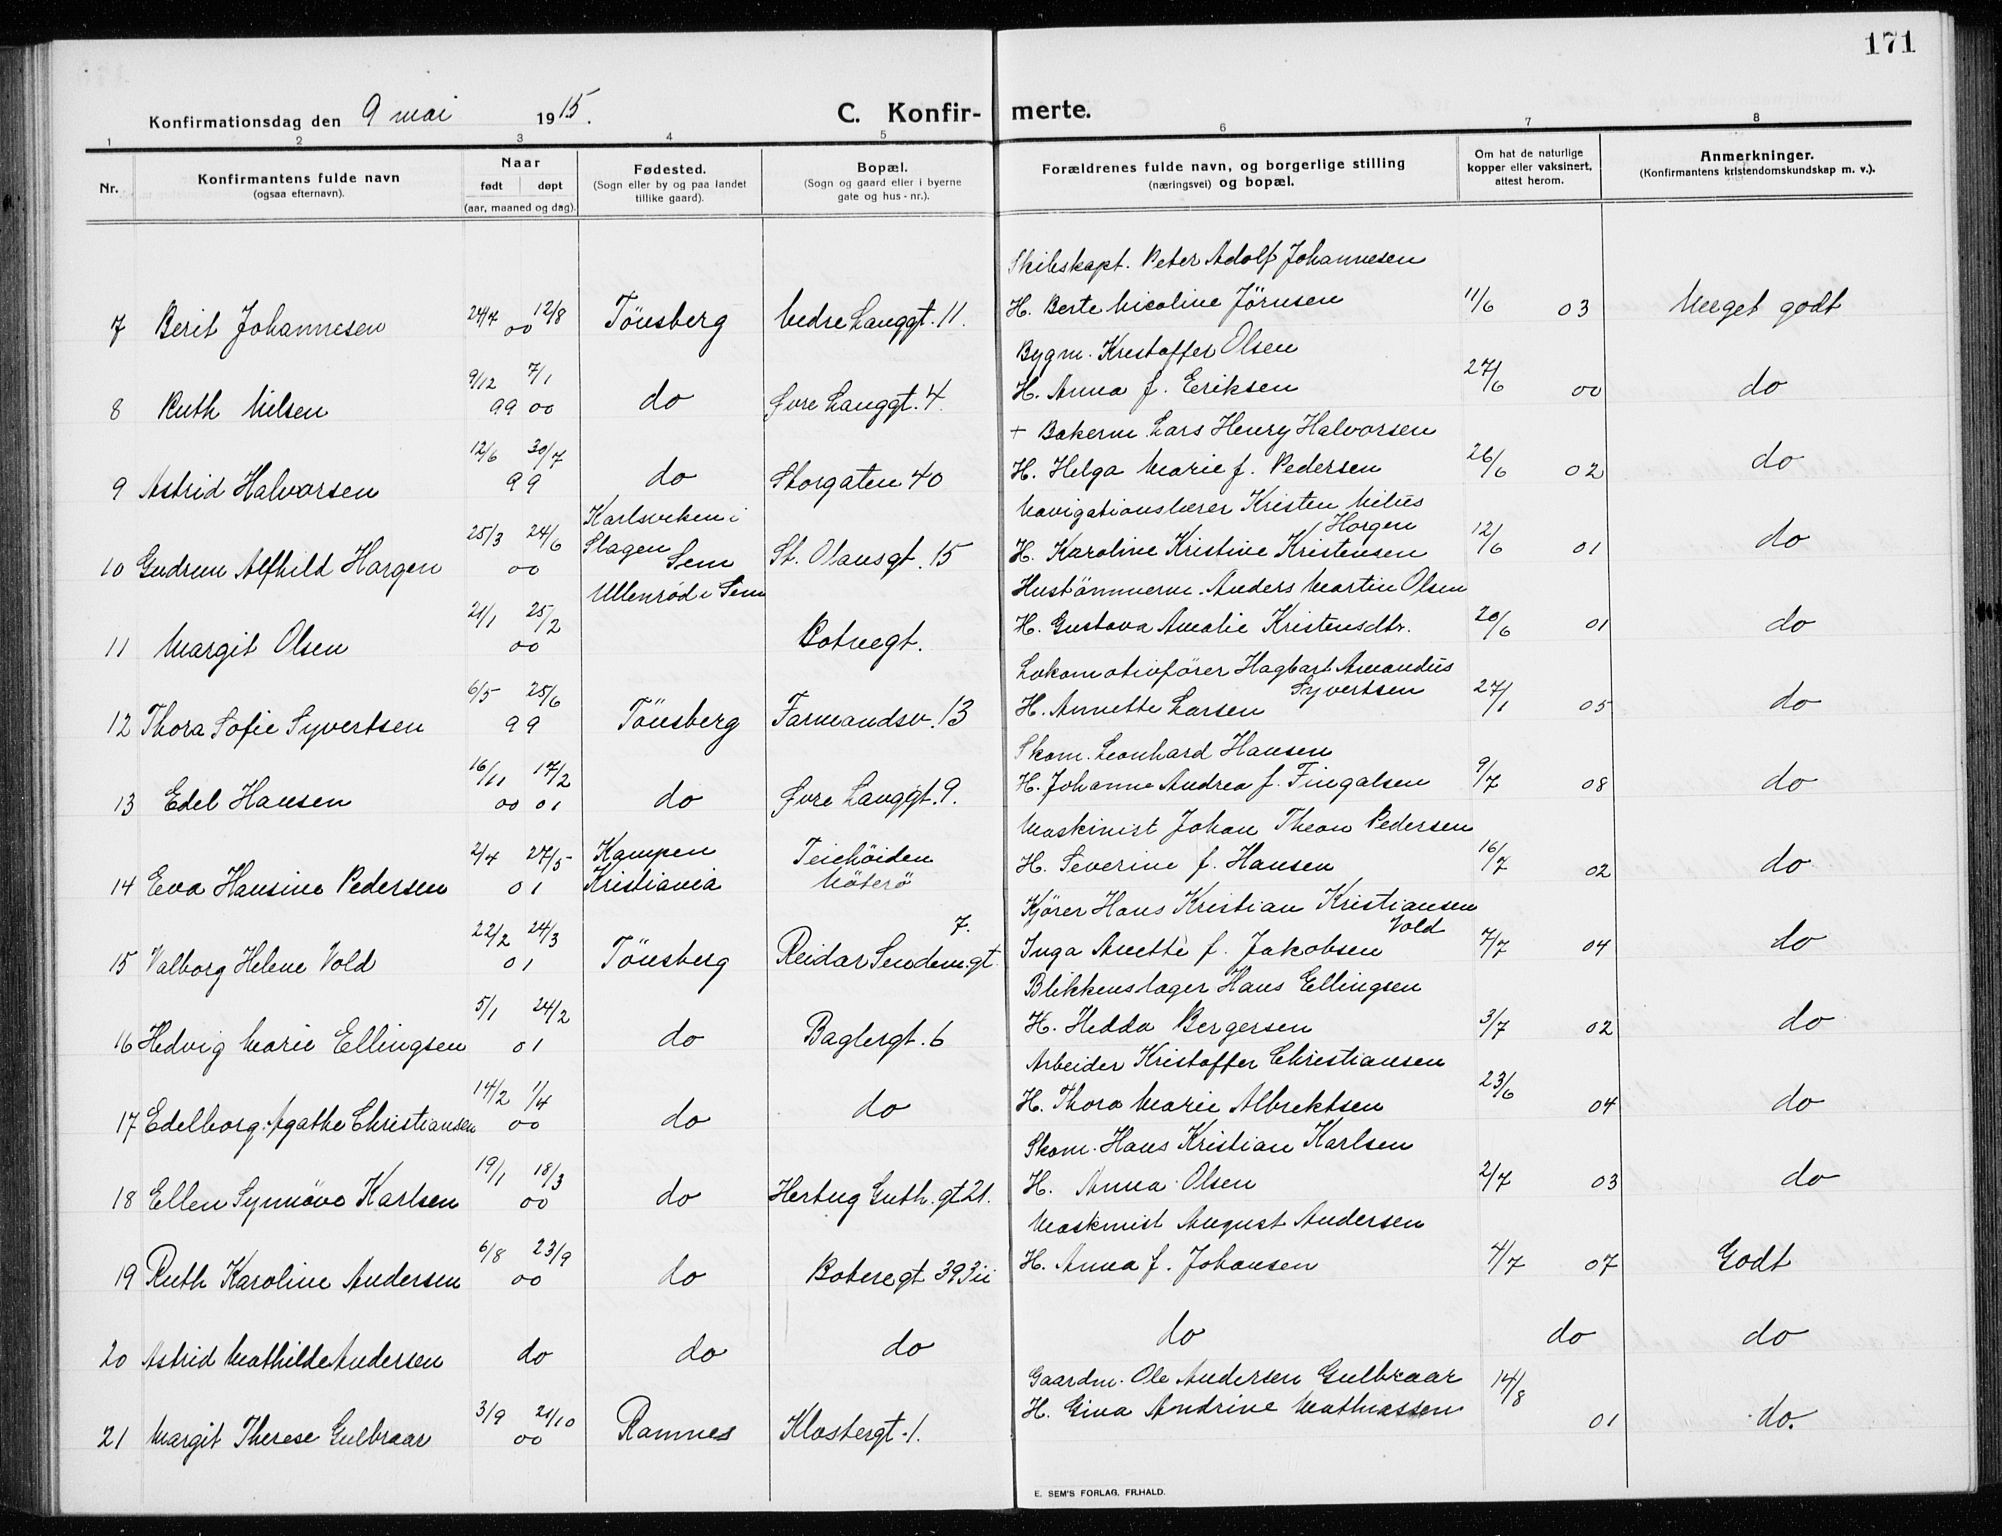 171
Konfirmationsdag den 9 mai 1915. C. Konfirmerte.
1 2 3 4 5 6 7 8
Nr. Konfirmantens fulde navn (ogsaa efternavn). Naar født døpt (aar, maaned og dag). Fødested. (Sogn eller by og paa landet tillike gaard). Bopæl. (Sogn og gaard eller i byerne gate og hus-nr.). Forældrenes fulde navn, og borgerlige stilling (næringsvei) og bopæl. Om hat de naturlige kopper eller vaksinert, attest herom. Anmerkninger. (Konfirmantens kristendomskundskap m. v.).
Skibskapt. Peter Adolf Johannesen
7 Berit Johannesen 24/4 12/8 00 Tönsberg Nedre Langgt. 11. H. Berte Nicoline Jörnsen 11/6 03 Meget godt
Bygm. Kristoffer Olsen
8 Ruth Nilsen 9/12 99 7/1 00 do Øvre Langgt. 4. H. Anna f. Eriksen 27/6 00 do
+ Bakerm. Lars Henry Halvorsen
9 Astrid Halvorsen 12/6 30/7 99 do Storgaten 40 H. Helga Marie f. Pedersen 26/6 02 do
Navigationslærer Kristen Nilius Horgen
10 Gudrun Alfhild Horgen 25/3 24/6 00 Karlsviken i Slagen Sem St. Olausgt. 15 H. Karoline Kristine Kristensen 12/6 01 do
Hustömmerm. Anders Martin Olsen
11 Margit Olsen 21/1 25/2 00 Ullenröd i Sem Botnegt. H. Gustava Amalie Kristensdtr. 20/6 01 do
Lokomotivförer Hagbart Amandus Syvertsen
12 Thora Sofie Syvertsen 6/5 25/6 99 Tönsberg Farmandsv. 13 H. Annette Larsen 27/1 05 do
Skom. Leonhard Hansen
13 Edel Hansen 16/11 00 17/2 01 do Øvre Langgt. 9. H. Johanne Andrea f. Fingalsen 9/7 08 do
Maskinist Johan Theon Pedersen
14 Eva Hansine Pedersen 2/4 27/5 01 Kampen Kristiania Teiehöiden Nöterö H. Severine f. Hansen 16/7 02 do
Kjörer Hans Kristian Kristiansen Vold
15 Valborg Helene Vold 22/2 24/3 01 Tönsberg Reidar Sendem. gt 7. Inga Anette f. Jakobsen 7/7 04 do
Blikkenslager Hans Ellingsen
16 Hedvig Marie Ellingsen 5/1 24/2 01 do Baglergt. 6 H. Hedda Bergersen 3/7 02 do
Arbeider Kristoffer Christiansen
17 Edelborg Agathe Christiansen 14/2 1/4 00 do do H. Thora Marie Albrektsen 23/6 04 do
Skom. Hans Kristian Karlsen
18 Ellen Synnöve Karlsen 19/1 18/3 00 do Hertug Guth. gt 21. H. Anna Olsen 2/7 03 do
Maskinist August Andersen
19 Ruth Karoline Andersen 6/8 23/9 00 do 39 H. Anna f. Johansen 4/7 07 Godt
20 Astrid Mathilde Andersen do do do do do do
Gaardm. Ole Andersen Gulbraar
21 Margit Therese Gulbraar 3/9 21/10 00 Ramnes Klostergt. 1. H. Gina Andrine Mathiassen 14/8 01 do.
E. SEM'S FORLAG, FR.HALD.